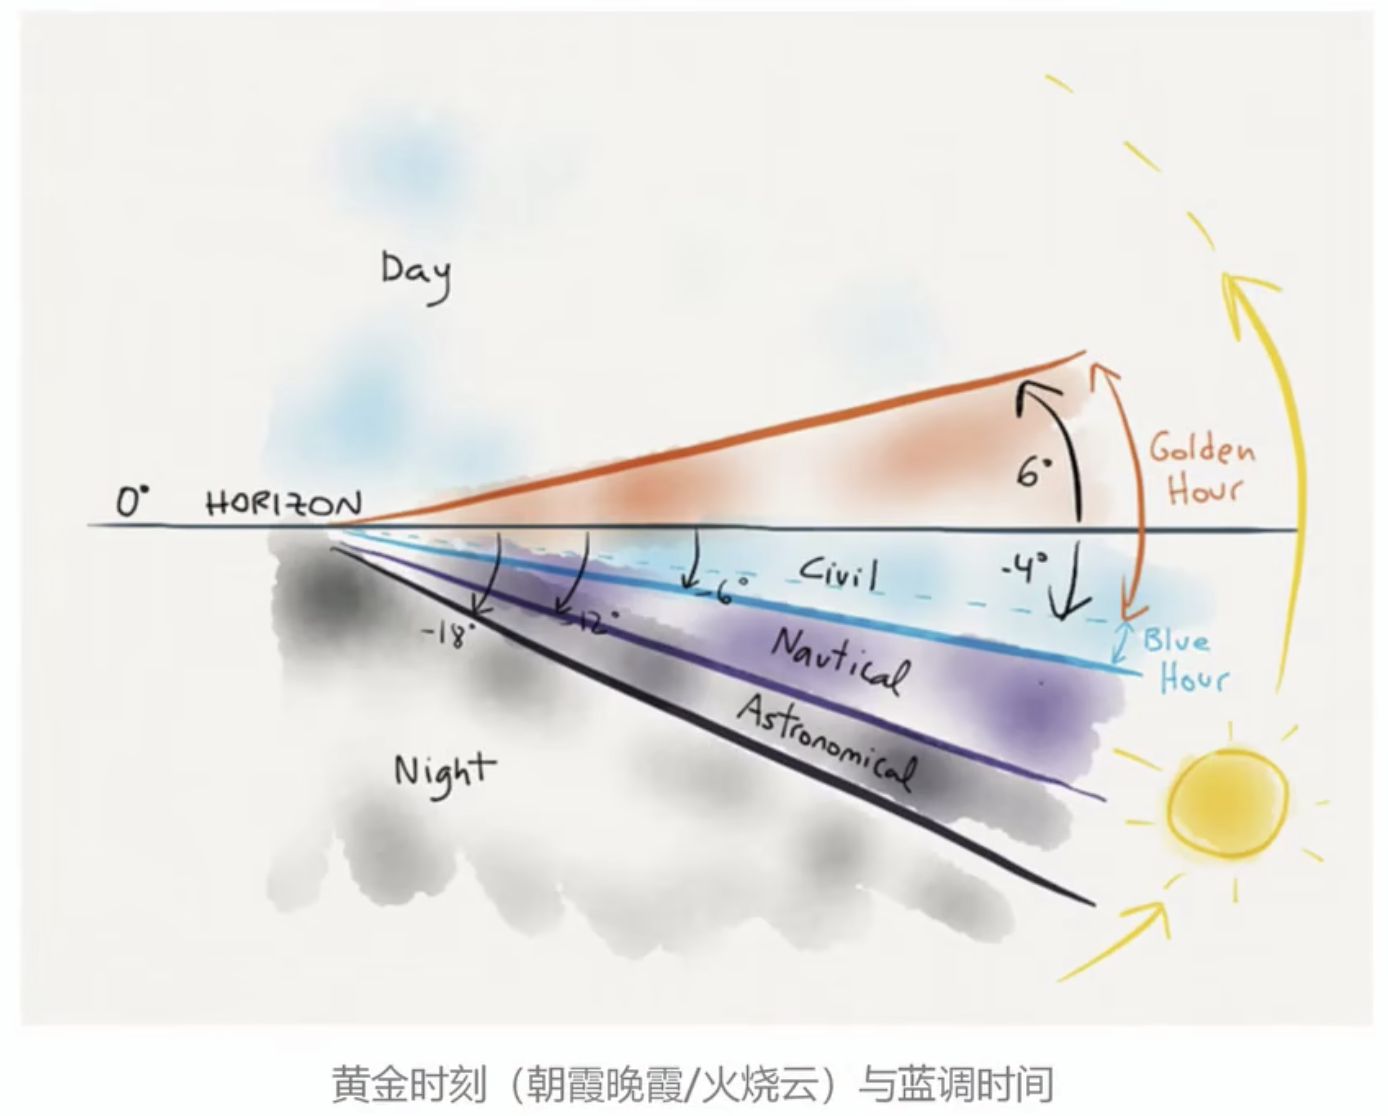 Day
0° HORIZON
6°
Golden
Hour
Civil
-4°
-6°
-12°
-18°
Nautical
Blue
Hour
Astronomical
Night
黄金时刻（朝霞晚霞/火烧云）与蓝调时间